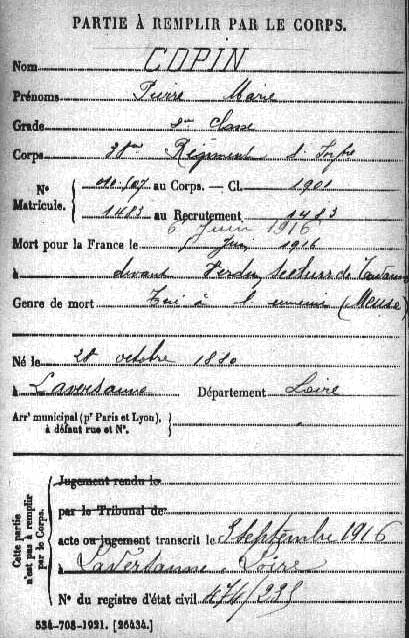 PARTIE À REMPLIR PAR LE CORPS.
Nom COPIN
Prénoms Pierre Marie
Grade 2me Classe
Corps 38me Régiment d'Infie
Nº Matricule. au Corps. — Cl. 1901
1483 au Recrutement 1483
6 Juin 1916
Mort pour la France le Juin 1916
à devant Verdun, secteur de
Genre de mort Tué à l'ennemi (Meuse)
Né le 28 octobre 1880
à Laversanne Département Loire
Arrt municipal (pr Paris et Lyon), à défaut rue et Nº.
Cette partie n'est pas à remplir par le Corps.
Jugement rendu le
par le Tribunal de
acte ou jugement transcrit le 3 septembre 1916
à LaVersanne - Loire
Nº du registre d'état civil 474/235
534-708-1921. [26434.]